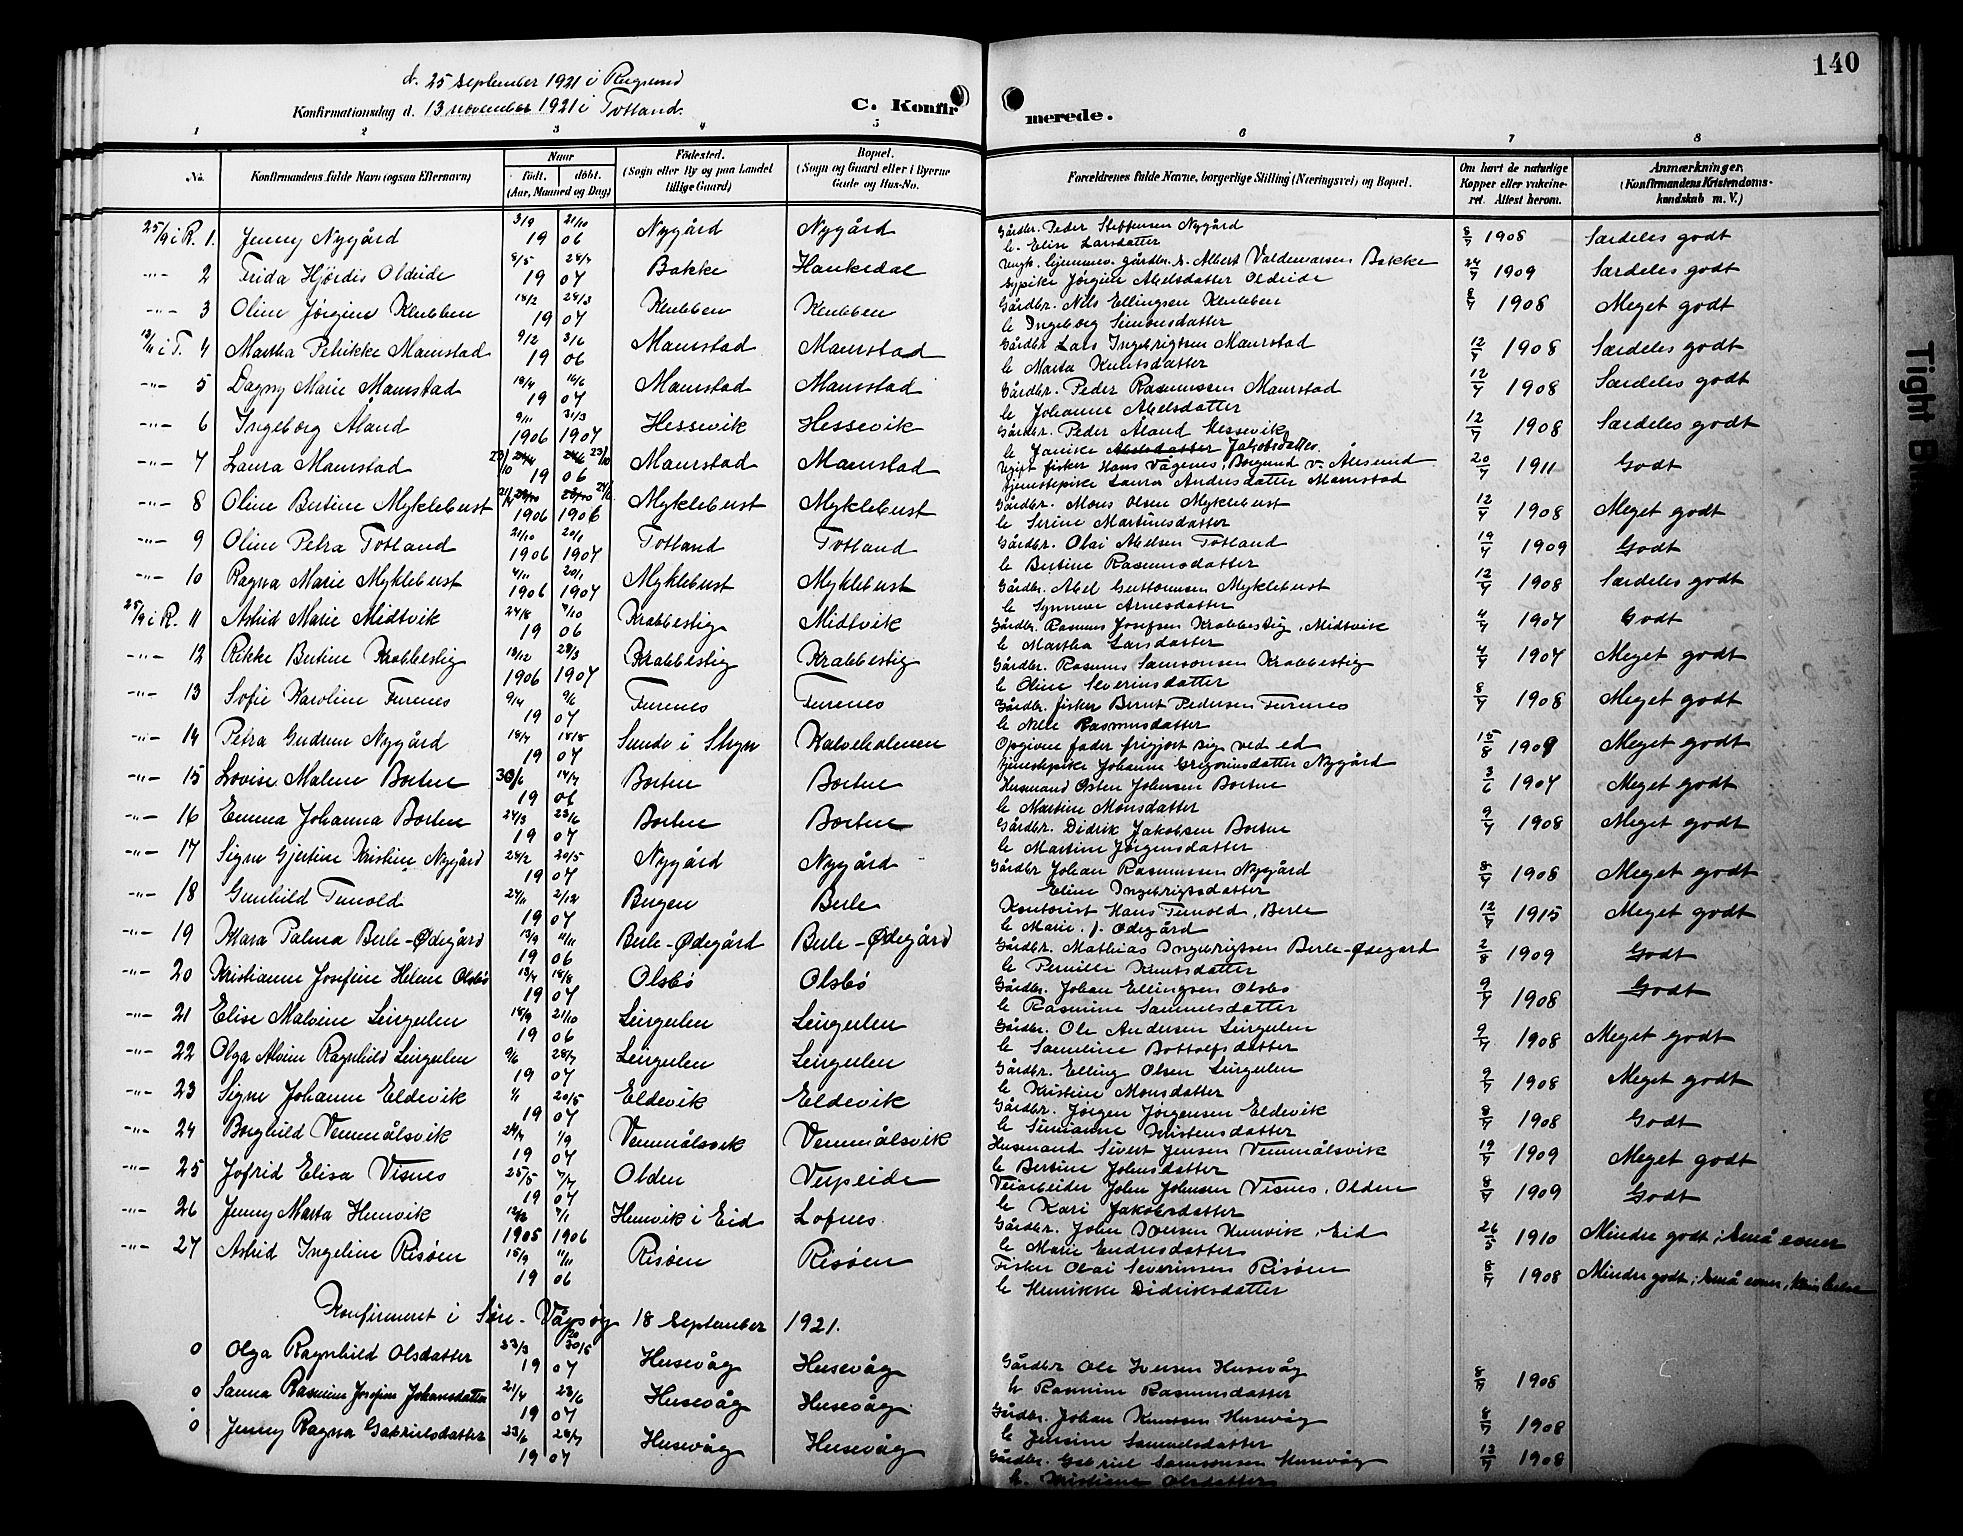 140
d. 25 september 1921 i Rugsund
Konfirmationsdag d. 13 november 1921 i Totland.
C. Konfirmerede.
1 2 3 4 5 6 7 8
No.
Konfirmandens fulde Navn (ogsaa Efternavn)
Naar
født. døbt.
(Aar, Maaned og Dag)
Fødested.
(Sogn eller By og paa Landet tillige Gaard)
Bopæl.
(Sogn og Gaard eller i Byerne Gade og Hus-No.
Forældrenes fulde Navne, borgerlige Stilling (Næringsvei) og Bopæl.
Om havt de naturlige Kopper eller vakcineret. Attest herom.
Anmærkninger.
(Konfirmandens Kristendomskundskab m. V.)
25/9 i R. 1. Jenny Nygård 3/9 21/10 1906 Nygård Nygård Gårdbr. Peder Steffensen Nygård 8/7 1908 Særdeles godt
h. Elise Larsdatter
-"- 2 Frida Hjørdis Oldeide 8/5 28/7 1907 Bakke Hankedal Ungk. hjemmev. gårdbr. s. Albert Valdemarsen Bakke 24/7 1909 Særdeles godt
Sypike Jørgine Abelsdatter Oldeide
-"- 3 Oline Jørgine Klubben 18/2 28/3 1907 Klubben Klubben Gårdbr. Nils Ellingsen Klubben 8/7 1908 Meget godt
h. Ingeborg Simonsdatter
13/11 i T. 4 Martha Petrikke Maurstad 9/2 3/6 1906 Maurstad Maurstad Gårdbr. Lars Ingebrigtsen Maurstad 12/7 1908 Særdeles godt
h. Marta Knutsdatter
-"- 5 Dagny Marie Maurstad 18/4 16/6 1907 Maurstad Maurstad Gårdbr. Peder Rasmussen Maurstad 12/7 1908 Særdeles godt
h. Johanne Abelsdatter
-"- 6 Ingeborg Åland 9/11 31/3 1906 1907 Hessevik Hessevik Gårdbr. Peder Åland Hessevik 12/7 1908 Særdeles godt
h. Janike Abelsdatter Jakobsdatter
-"- 7 Laura Maurstad 23/10 23/10 1906 Maurstad Maurstad Ugift fisker Hans Vågenes, Borgund v. Ålesund 20/7 1911 Godt
Tjenestepike Laura Andersdatter Maurstad
-"- 8 Oline Bertine Myklebust 1906 1906 Myklebust Myklebust Gårdbr. Mons Olsen Myklebust 12/7 1908 Meget godt
h. Serine Martinsdatter
-"- 9 Oline Petra Totland 21/10 20/1 1906 1907 Totland Totland Gårdbr. Olai Abelsen Totland 19/7 1909 Godt
h. Bertine Rasmusdatter
-"- 10 Ragna Marie Myklebust 4/11 20/1 1906 1907 Myklebust Myklebust Gårdbr. Abel Guttormsen Myklebust 12/7 1908 Særdeles godt
h. Synneve Arnesdatter
25/9 i R. 11 Astrid Marie Midtvik 24/8 7/10 1906 Krabbestig Midtvik Gårdbr. Rasmus Josefsen Krabbestig, Midtvik 4/7 1907 Godt
h. Martha Larsdatter
-"- 12 Rikke Bertine Krabbestig 18/12 28/3 1906 1907 Krabbestig Krabbestig Gårdbr. Rasmus Samsonsen Krabbestig 4/7 1907 Meget godt
h. Oline Severinsdatter
-"- 13 Sofie Karoline Furenes 9/4 9/6 1907 Furenes Furenes Gårdbr. fisker Bernt Pedersen Furenes 8/7 1908 Meget godt
h. Nelle Rasmusdatter
-"- 14 Petra Gudrun Nygård 18/7 18/8 1907 Sunde i Stryn Kalveholmen Opgiven fader frigjort sig ved ed 15/8 1909 Meget godt
Tjenestepike Johanne Grigoriusdatter Nygård
-"- 15 Lovise Malene Bortne 30/6 14/7 1906 Bortne Bortne Husmand Østen Johnsen Bortne 3/6 1907 Meget godt
h. Martine Monsdatter
-"- 16 Emma Johanna Bortne 24/3 23/6 1907 Bortne Bortne Gårdbr. Didrik Jakobsen Bortne 9/7 1908 Meget godt
h. Martine Jørgensdatter
-"- 17 Signe Gjertine Kristine Nygård 28/2 20/5 1907 Nygård Nygård Gårdbr Johan Rasmussen Nygård 8/7 1908 Meget godt
Eline Ingebrigtsdatter
-"- 18 Gunhild Tunold 27/11 2/12 1907 Bergen Berle Kontorist Hans Tunold, Berle 12/7 1915 Meget godt
h. Marie f. Ødegård
-"- 19 Klara Palma Berle-Ødegård 13/9 11/11 1906 Berle-Ødegård Berle-Ødegård Gårdbr. Mathias Ingebrigtsen Berle-Ødegård 2/8 1909 Godt
h. Pernille Knutsdatter
-"- 20 Kristianne Josefine Helene Olsbø 13/7 18/8 1907 Olsbø Olsbø Gårdbr. Johan Ellingsen Olsbø 9/7 1908 Godt
h. Rasmine Samuelsdatter
-"- 21 Elise Malvine Leirgulen 18/9 21/10 1906 Leirgulen Leirgulen Gårdbr. Ole Andersen Leirgulen 9/7 1908 Meget godt
h. Sameline Bottolfsdatter
-"- 22 Olga Alvine Ragnhild Leirgulen 9/6 28/7 1907 Leirgulen Leirgulen Gårdbr. Elling Olsen Leirgulen 9/7 1908 Meget godt
h. Kristine Monsdatter
-"- 23 Signe Johanne Eldevik 1/1 20/5 1907 Eldevik Eldevik Gårdbr. Jørgen Jørgensen Eldevik 8/7 1908 Godt
h. Simianne Kristensdatter
-"- 24 Borghild Vemmålsvik 24/7 1/9 1907 Vemmålsvik Vemmålsvik Husmand Sivert Jensen Vemmålsvik 19/7 1909 Meget godt
h. Bertine Johnsdatter
-"- 25 Jofrid Elisa Visnes 25/5 7/7 1907 Olden Veipeide Veiarbeider John Johnsen Visnes, Olden 8/7 1909 Godt
h. Kari Jakobsdatter
-"- 26 Jenny Marta Hunvik 12/12 7/1 1905 1906 Hunvik i Eid Lofnes Gårdbr. John Iversen Hunvik, Eid 26/5 1910 Mindre godt; små evner
h. Marie Endresdatter
-"- 27 Astrid Ingeline Risøen 15/9 11/11 1906 Risøen Risøen Fisker Olai Severinsen Risøen 8/7 1908 Mindre godt; små evner,
h. Henrikke Didriksdatter
Konfirmeret i Søre-Vågsøy 18 september 1921.
0 Olga Ragnhild Olsdatter 23/3 1907 Husevåg Husevåg Gårdbr Ole Iversen Husevåg 8/7 1908
h. Rasmine Rasmusdatter
0 Sanna Rasmine Josefine Johansdatter 21/4 23/6 1907 Husevåg Husevåg. Gårdbr. Johan Knutsen Husevåg 8/7 1908
h. Jensine Samuelsdatter
0 Jenny Ragna Gabrielsdatter 23/6 28/7 1907 Husevåg Husevåg Gårdbr. Gabriel Samsonsen Husevåg 13/7 1908
h. Kristiane Olsdatter
Tight Bin